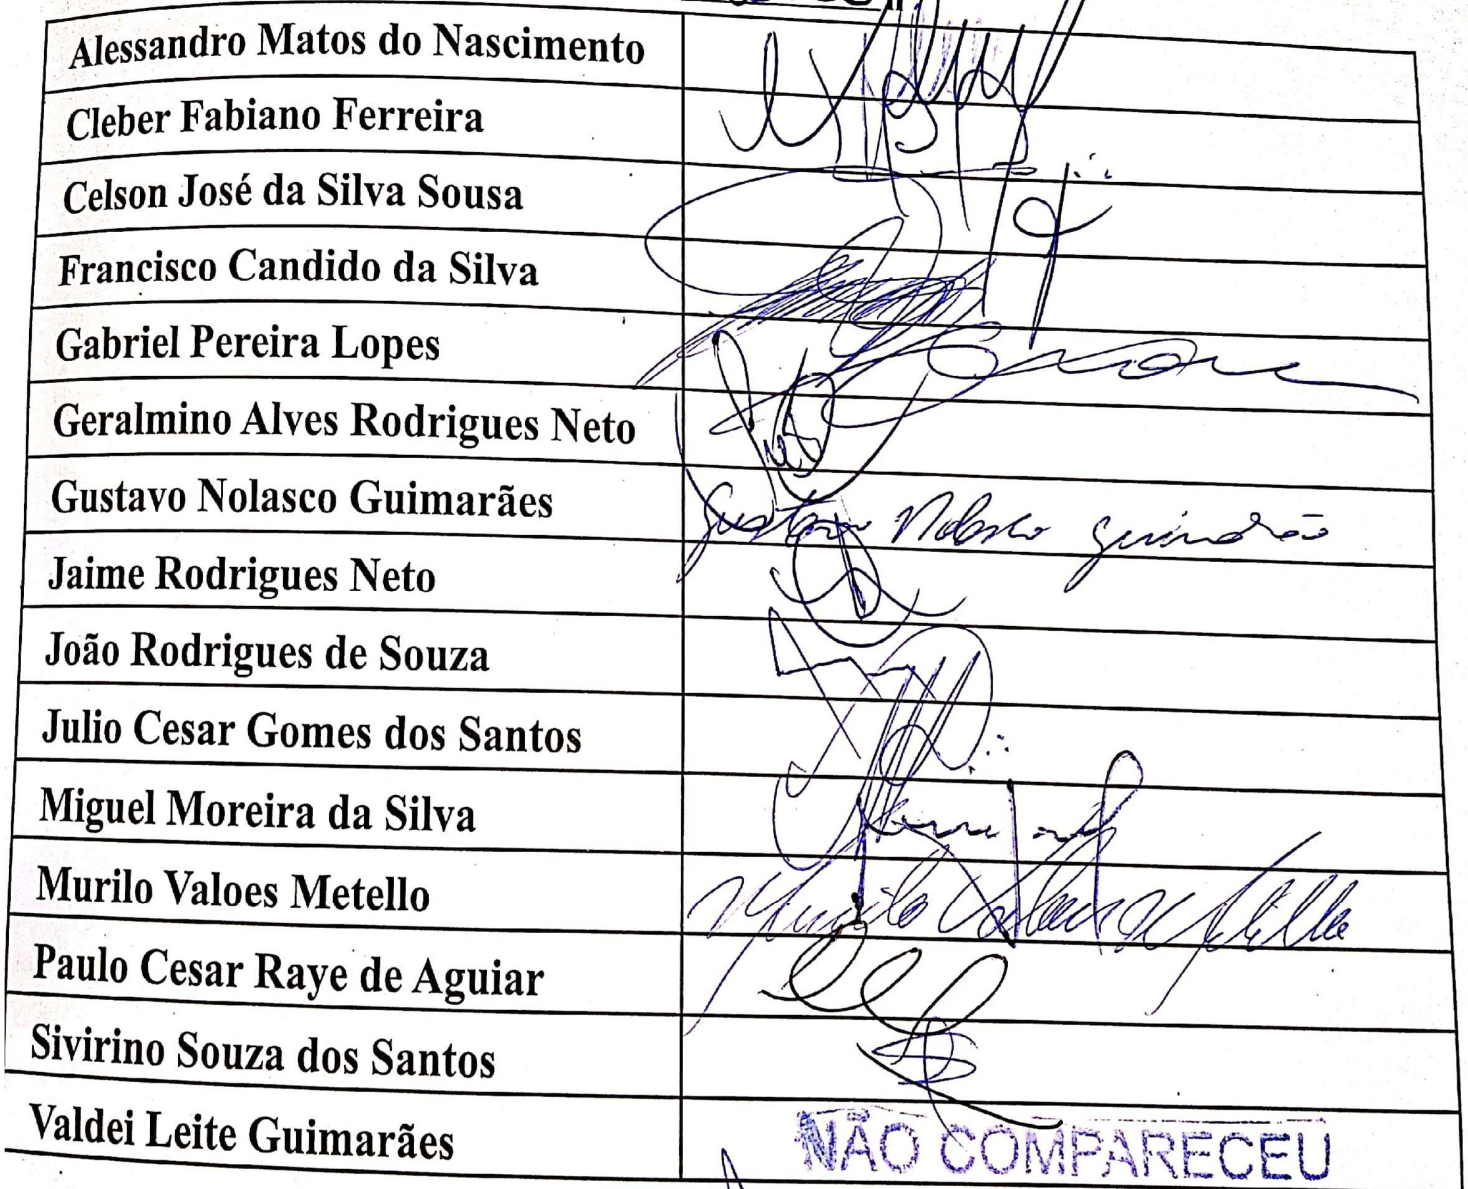 Alessandro Matos do Nascimento
Cleber Fabiano Ferreira
Celson José da Silva Sousa
Francisco Candido da Silva
Gabriel Pereira Lopes
Geralmino Alves Rodrigues Neto
Gustavo Nolasco Guimarães Gustavo Nolasco Guimarães
Jaime Rodrigues Neto
João Rodrigues de Souza
Julio Cesar Gomes dos Santos
Miguel Moreira da Silva
Murilo Valoes Metello Murilo Valoes Metello
Paulo Cesar Raye de Aguiar
Sivirino Souza dos Santos
Valdei Leite Guimarães NÃO COMPARECEU